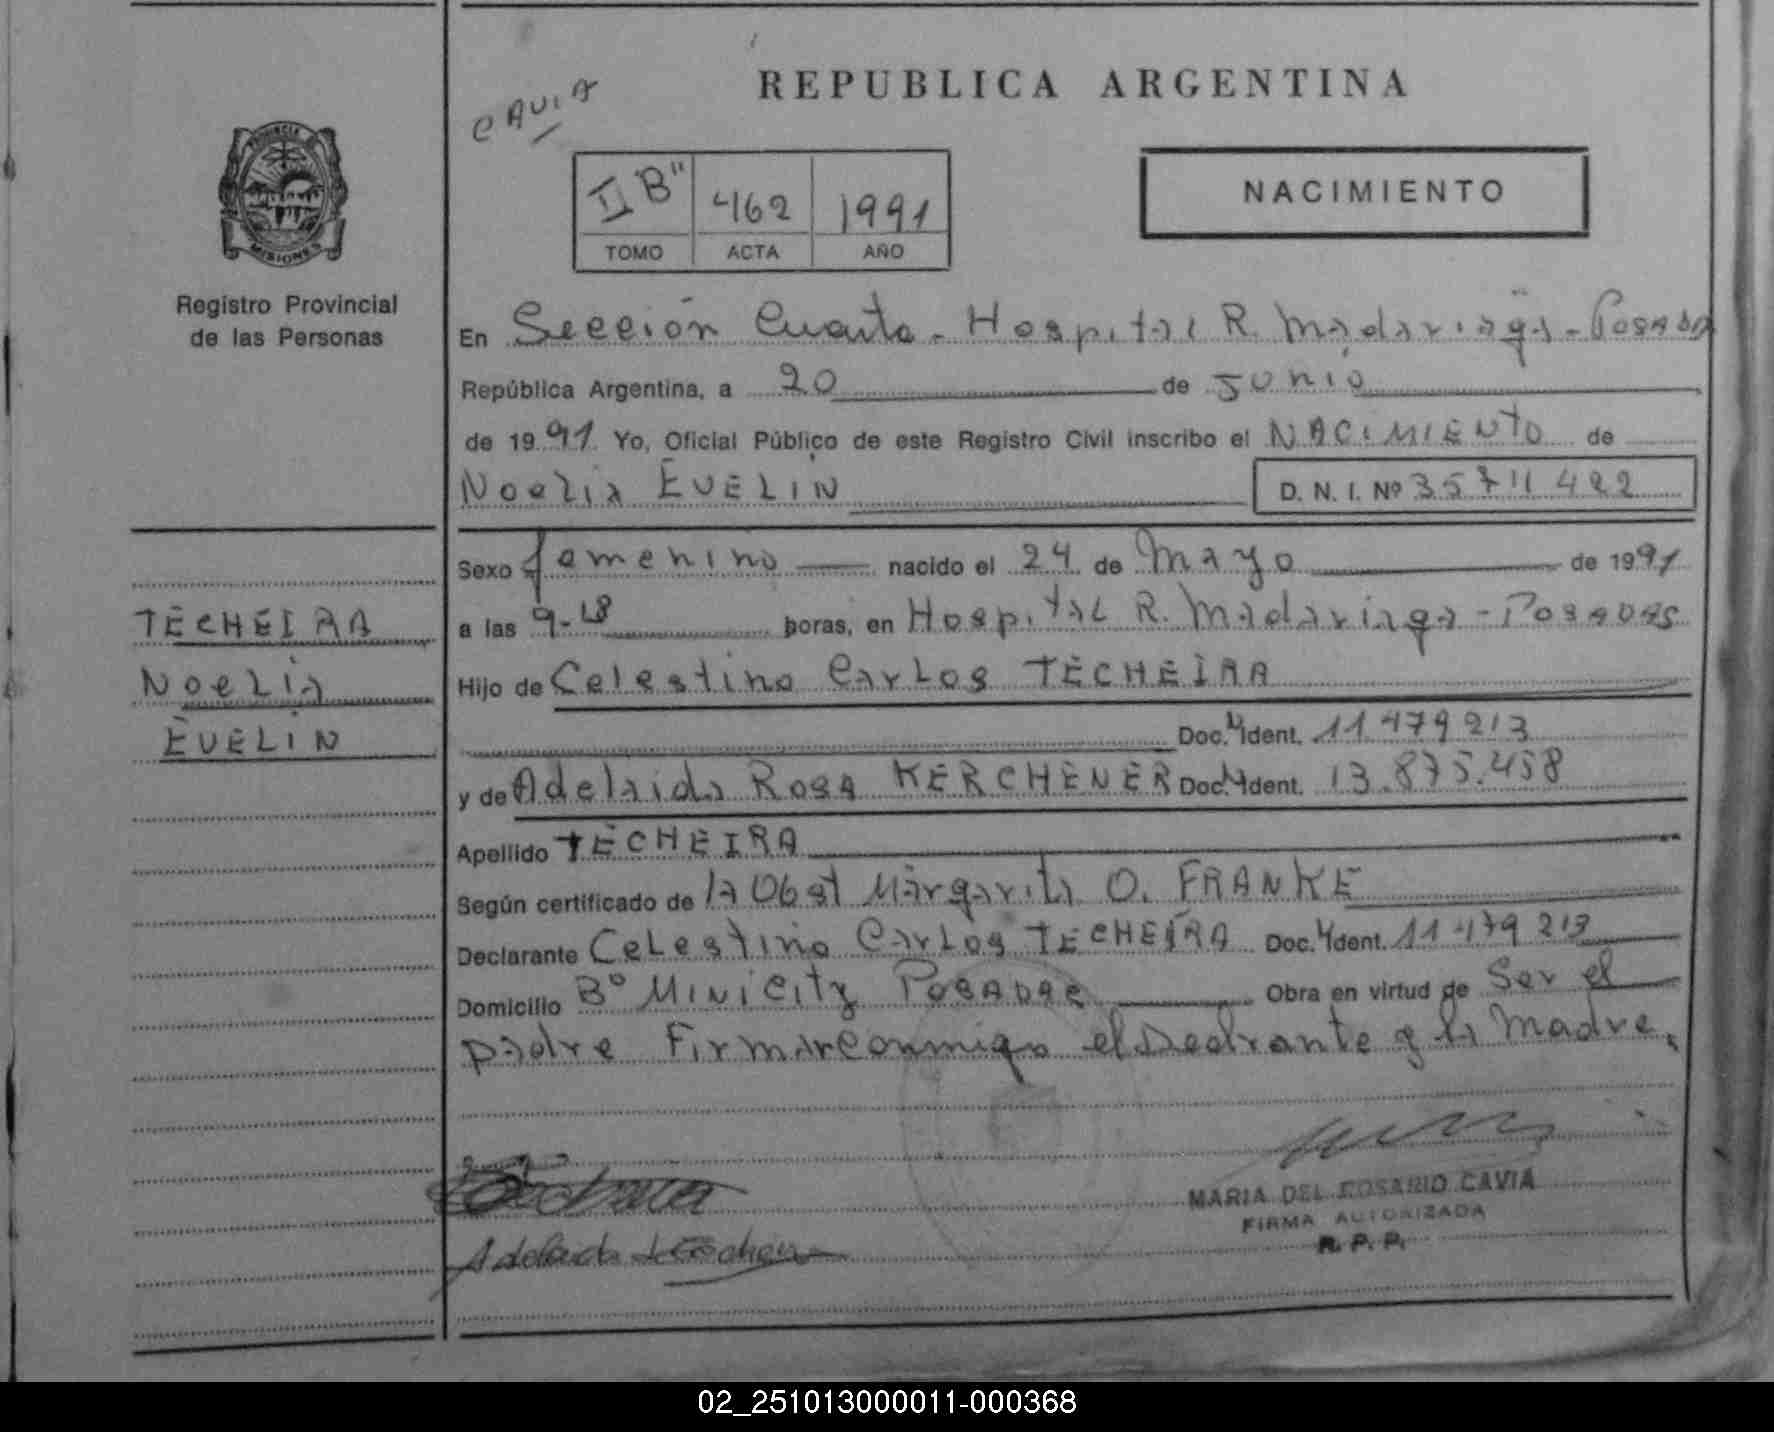 CAVIA
REPUBLICA ARGENTINA
PROVINCIA
MISIONES
II "B" 462 1991
TOMO ACTA AÑO
NACIMIENTO
Registro Provincial
de las Personas
En Sección Cuarta - Hospital R. Madariaga - Posadas
República Argentina, a 20 de Junio
de 1991 Yo, Oficial Público de este Registro Civil inscribo el NACIMIENTO de
Noelia EVELIN D. N. I. Nº 35711422
Sexo femenino nacido el 24 de Mayo de 1991
a las 9-18 horas, en Hospital R. Madariaga - Posadas
Hijo de Celestino Carlos TECHEIRA
Doc. Ident. 11479213
y de Adelaida Rosa KERCHENER Doc. Ident. 13.875.458
Apellido TECHEIRA
Según certificado de la Obst Margarita O. FRANKE
Declarante Celestino Carlos TECHEIRA Doc. Ident. 11479213
Domicilio Bº MiniCity Posadas Obra en virtud de Ser el
padre Firman Conmigo el Declrante y la Madre.
TECHEIRA
Noelia
EVELIN
MARIA DEL ROSARIO CAVIA
FIRMA AUTORIZADA
R. P. P.
02_251013000011-000368